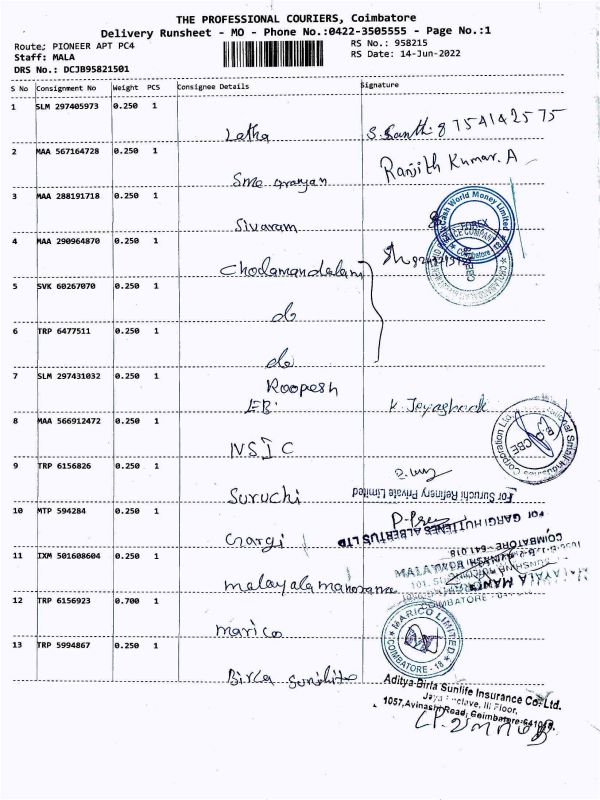 THE PROFESSIONAL COURIERS, Coimbatore
Delivery Runsheet - MO - Phone No.:0422-3505555 - Page No.:1
Route; PIONEER APT PC4
RS No.: 958215
Staff: MALA
RS Date: 14-Jun-2022
DRS No.: DCJB95821501
S No Consignment No Weight PCS Consignee Details Signature
1 SLM 297405973 0.250 1
Latha S. Santhi 8754142575
2 MAA 567164728 0.250 1 Ranjith Kumar. A
3 MAA 288191718 0.250 1
Sivaram
4 MAA 290964870 0.250 1
Chodamandalam
5 SVK 60267070 0.250 1
do
6 TRP 6477511 0.250 1
do
7 SLM 297431032 0.250 1
Roopesh
EB:
8 MAA 566912472 0.250 1
NSIC
9 TRP 6156826 0.250 1
Suruchi
For Suruchi Refinery Private Limited
10 MTP 594284 0.250 1
Gargi
For GARGI HUTTENES ALBERTUS LTD
COIMBATORE - 641 018
11 IXM 501608604 0.250 1
malayala manorama
MALAYALA MANORAMA
COIMBATORE
12 TRP 6156923 0.700 1
marico
MARICO LIMITED
COIMBATORE - 18
13 TRP 5994867 0.250 1
Birla Sunlife
Aditya Birla Sunlife Insurance Co. Ltd.
III Floor,
1057, Avinashi Road, Coimbatore-641018.